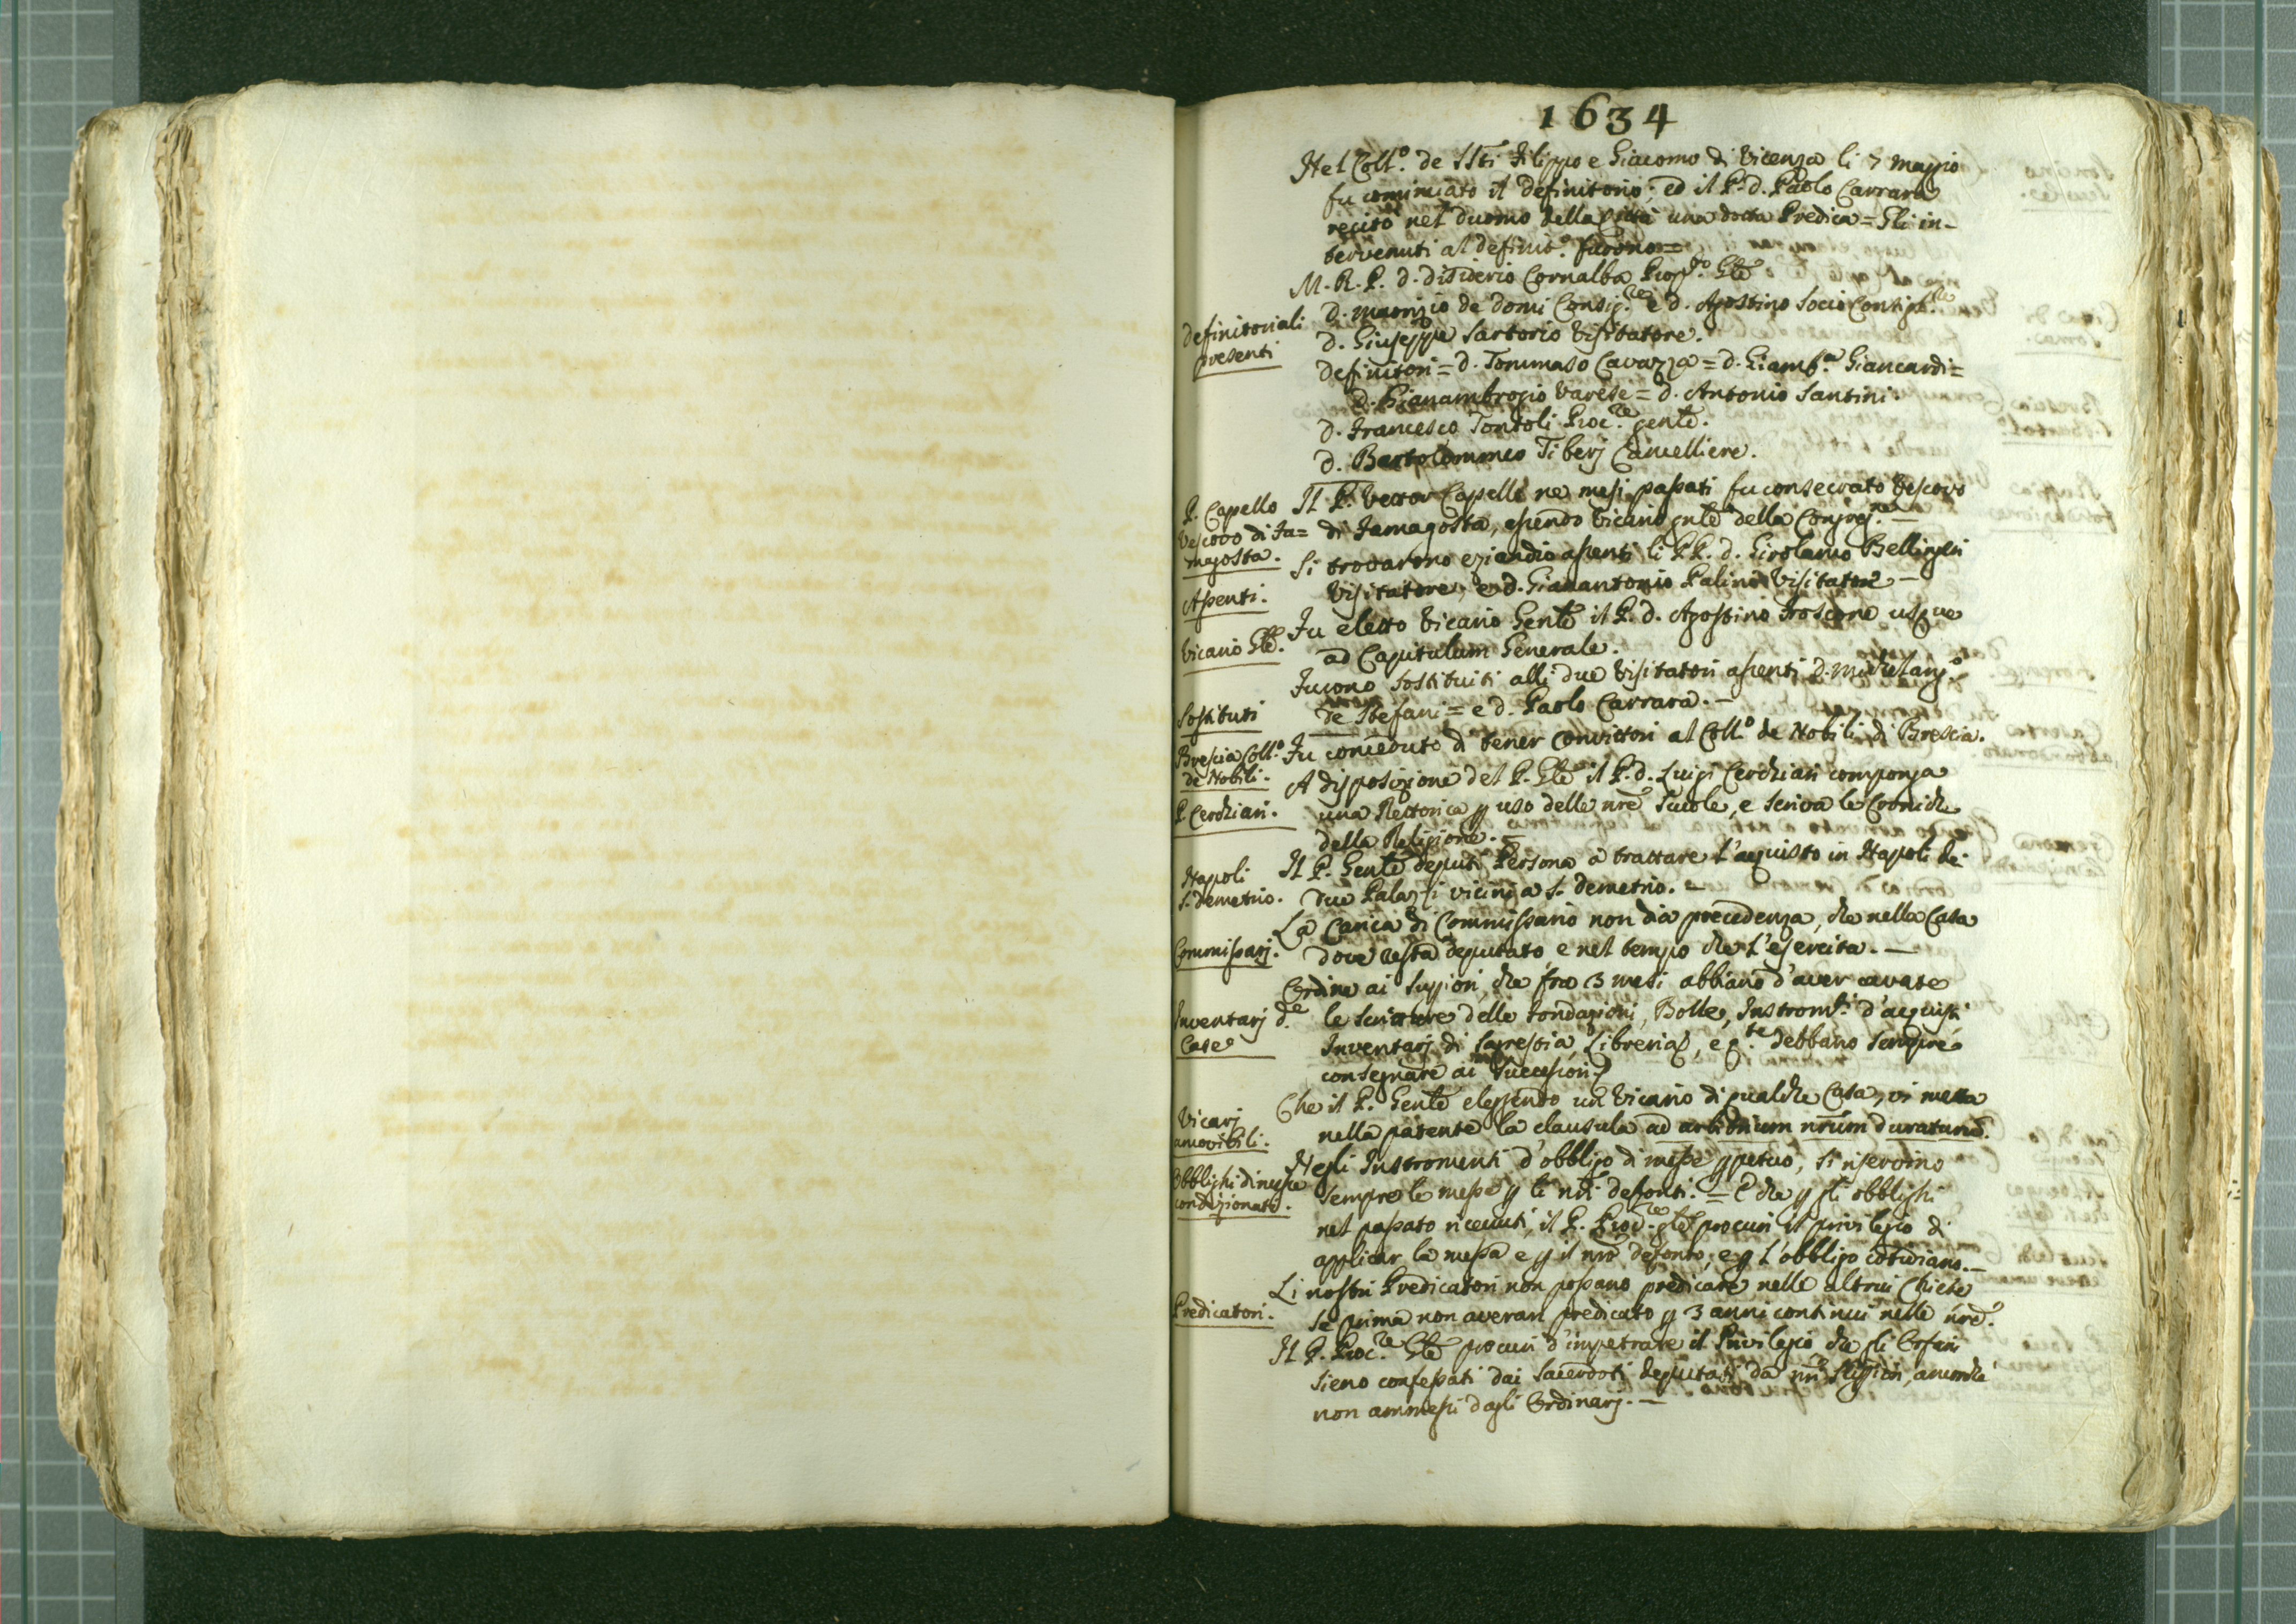 1634
Nel Coll.º de SSti Filippo e Giacomo di Vicenza li 7 maggio
fu cominciato il definitorio; ed il P. d. Paolo Carrara
recitò nel duomo della città una dotta Predica = Gli in-
tervenuti al definit.º furono =
M. R. P. d. disiderio Cornalba Prep.to Gle
definitoriali
presenti
d. maurizio de domi Consig.re e d. Agostino Socio Consigl.re
d. Giuseppe Sartorio Visitatore.
definitori = d. Tommaso Cavazza = d. Giamb.a Giancardi =
d. Gianambrogio Varese = d. Antonio Santini.
d. Francesco Tontoli Proc.re genle.
d. Bartolommeo Tiberj Cancelliere.
P. Capello
Vescovo di Fa=
magosta.
Il P. Vettor Capello ne mesi passati fu consecrato Vescovo
di Famagosta, essendo Vicario gnle della Congreg.ne —
Assenti.
Si trovarono eziandio assenti li PP. d. Girolamo Bellingeri
Visitatore, e d. Gianantonio Palino Visitatore —
Vicario Gle.
Fu eletto Vicario Genle il P. d. Agostino Froscone usque
ad Capitulum Generale.
Sostituti
Furono sostituiti alli due Visitatori assenti d. Michelang.º
de Stefani = e d. Paolo Carrara. —
Brescia Coll.º
de Nobili.
Fu conceduto di tener convittori al Coll.º de Nobili di Brescia.
P. Cerchiari.
A disposizione del P. Gle il P. d. Luigi Cerchiari componga
una Rettorica p uso delle nre Scuole, e scriva le Croniche
della Religione. —
Napoli
S. demetrio.
Il P. Genle deputi Persona a trattare l'acquisto in Napoli de
due Palazzi vicini a S. demetrio. —
Commissarj.
La Carica di Commissario non dia precedenza, che nella Casa
dove resta deputato, e nel tempo che l'esercita. —
Inventarj d.e
Case
Ordine ai Suppiori, che fra 3 mesi abbiano d'aver cavate
le scritture delle fondazioni, Bolle, Instrom.ti d'acquisti
Inventarj di Sagrestia, Libreria, e q.te debbano sempre
consegnare ai Successori
Vicarj
amovibili.
Che il P. Genle eleggendo un Vicario di qualche Casa, vi metta
nella patente la clausula ad arbitrium nrum duraturu.
Obblighi di messe
condizionati.
Negli Instromenti d'obbligo di messe ppetuo, si riservino
sempre le messe p li nri defonti. — E che p gli obblighi
nel passato ricevuti, il P. Proc.re gle procuri il privilegio di
applicar la messa e p il nro defonto, e p l'obbligo cotidiano. —
Predicatori.
Li nostri Predicatori non possano predicare nelle altrui Chiese
se prima non averan predicato p 3 anni continui nelle nre.
Il P. Proc.re Gle procuri d'impetrare il Privilegio, che gli Orfani
sieno confessati dai Sacerdoti deputati da nri Suppiori, ancorchè
non ammessi dagli Ordinarj. —